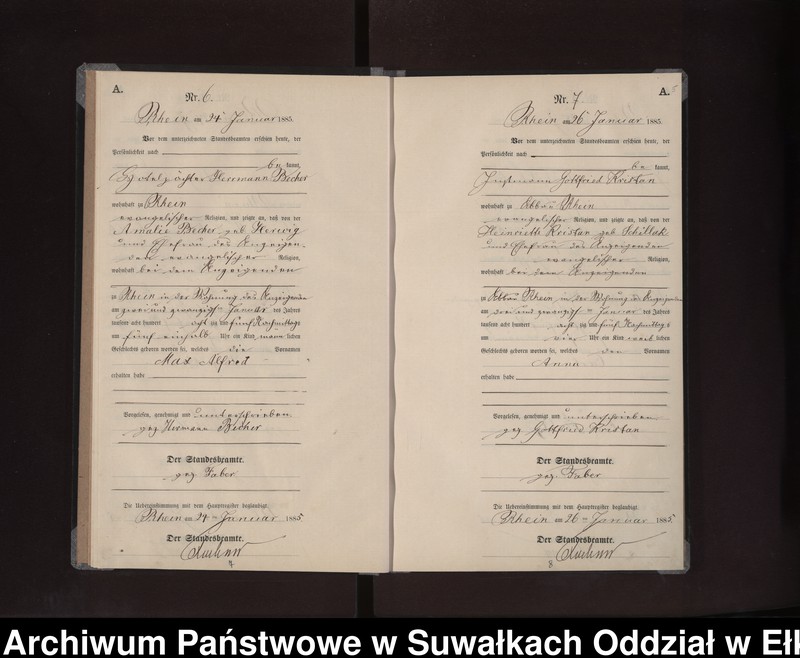 A.
Nr. 6.
Rhein am 24 Januar 1885.
Vor dem unterzeichneten Standesbeamten erschien heute, der
Persönlichkeit nach
be kannt,
Hotelpächter Herrmann Becher
wohnhaft zu Rhein
evangelischer Religion, und zeigte an, daß von der
Amalie Becher geb Herwig
und Ehefrau des Anzeigen-
den evangelischer Religion,
wohnhaft bei dem Anzeigenden
zu Rhein in der Wohnung des Anzeigenden
am zwei und zwanzigsten Januar des Jahres
tausend acht hundert acht zig fünf Nachmittags
um fünf einhalb Uhr ein Kind männ lichen
Geschlechts geboren worden sei, welches die Vornamen
Max Alfred
erhalten habe
Vorgelesen, genehmigt und unterschrieben
gez Hermann Becher
Der Standesbeamte.
gez Faber
Die Uebereinstimmung mit dem Hauptregister beglaubigt.
Rhein am 24 ten Januar 1885
Der Standesbeamte.
7
A.
Nr. 7
Rhein am 26 Januar 1885.
Vor dem unterzeichneten Standesbeamten erschien heute, der
Persönlichkeit nach
be kannt,
Gottfried Kristan
wohnhaft zu Abbau Rhein
evangelischer Religion, und zeigte an, daß von der
Heinriette Kristan geb Schillak
und Ehefrau des Anzeigenden
evangelischer Religion,
wohnhaft bei dem Anzeigenden
zu Abbau Rhein in der Wohnung des Anzeigenden
am drei und zwanzigsten Januar des Jahres
tausend acht hundert acht zig fünf Nachmittags
um vier Uhr ein Kind weib lichen
Geschlechts geboren worden sei, welches den Vornamen
Anna
erhalten habe
Vorgelesen, genehmigt und unterschrieben
gez Gottfried Kristan
Der Standesbeamte.
gez. Faber
Die Uebereinstimmung mit dem Hauptregister beglaubigt.
Rhein am 26 ten Januar 1885
Der Standesbeamte.
8
Archiwum Państwowe w Suwałkach Oddział w Ełk